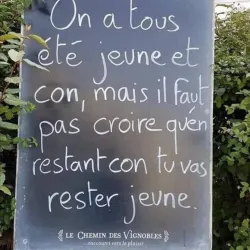 On a tous
été jeune et
con, mais il faut
pas croire qu'en
restant con tu vas
rester jeune.
LE CHEMIN DES VIGNOBLES
raccourci vers le plaisir